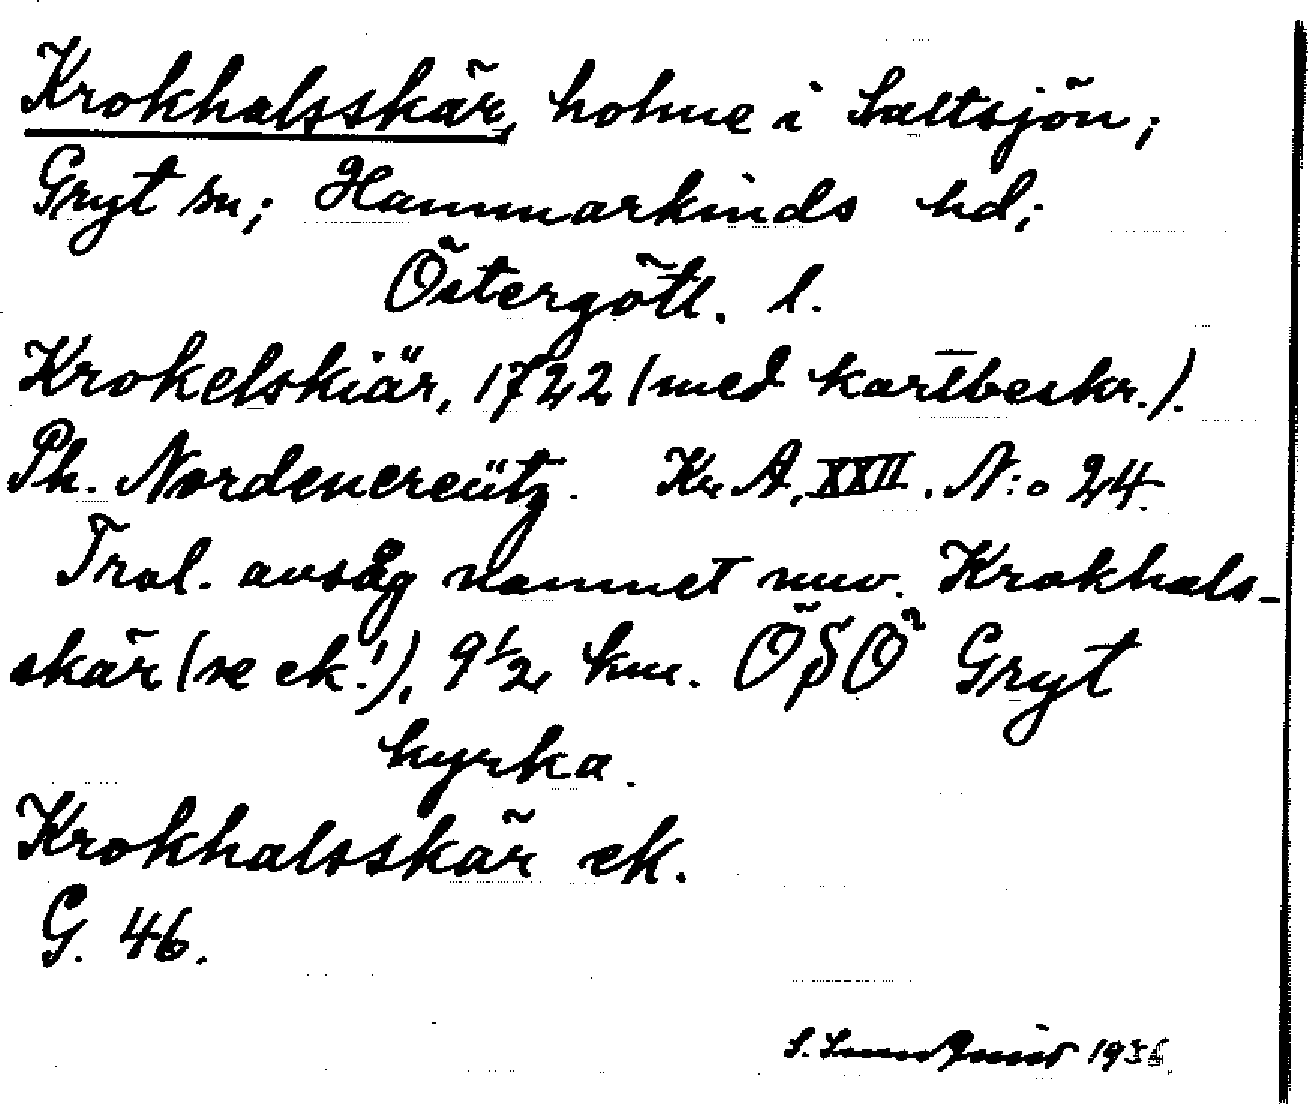 Krokhalsskär, holme i Saltsjön;
Gryt sn; Hammarkinds hd;
Östergötl. l.
Krokelskiär, 1722 (med kartbeskr.).
Ph. Nordencreütz. Kr. A. XXII. N:o 24.
Trol. avsåg namnet nuv. Krokhals-
skär (se ek.!), 9 1/2 km. ÖSÖ Gryt
kyrka.
Krokhalsskär ek.
G. 46.
S. Lundquist